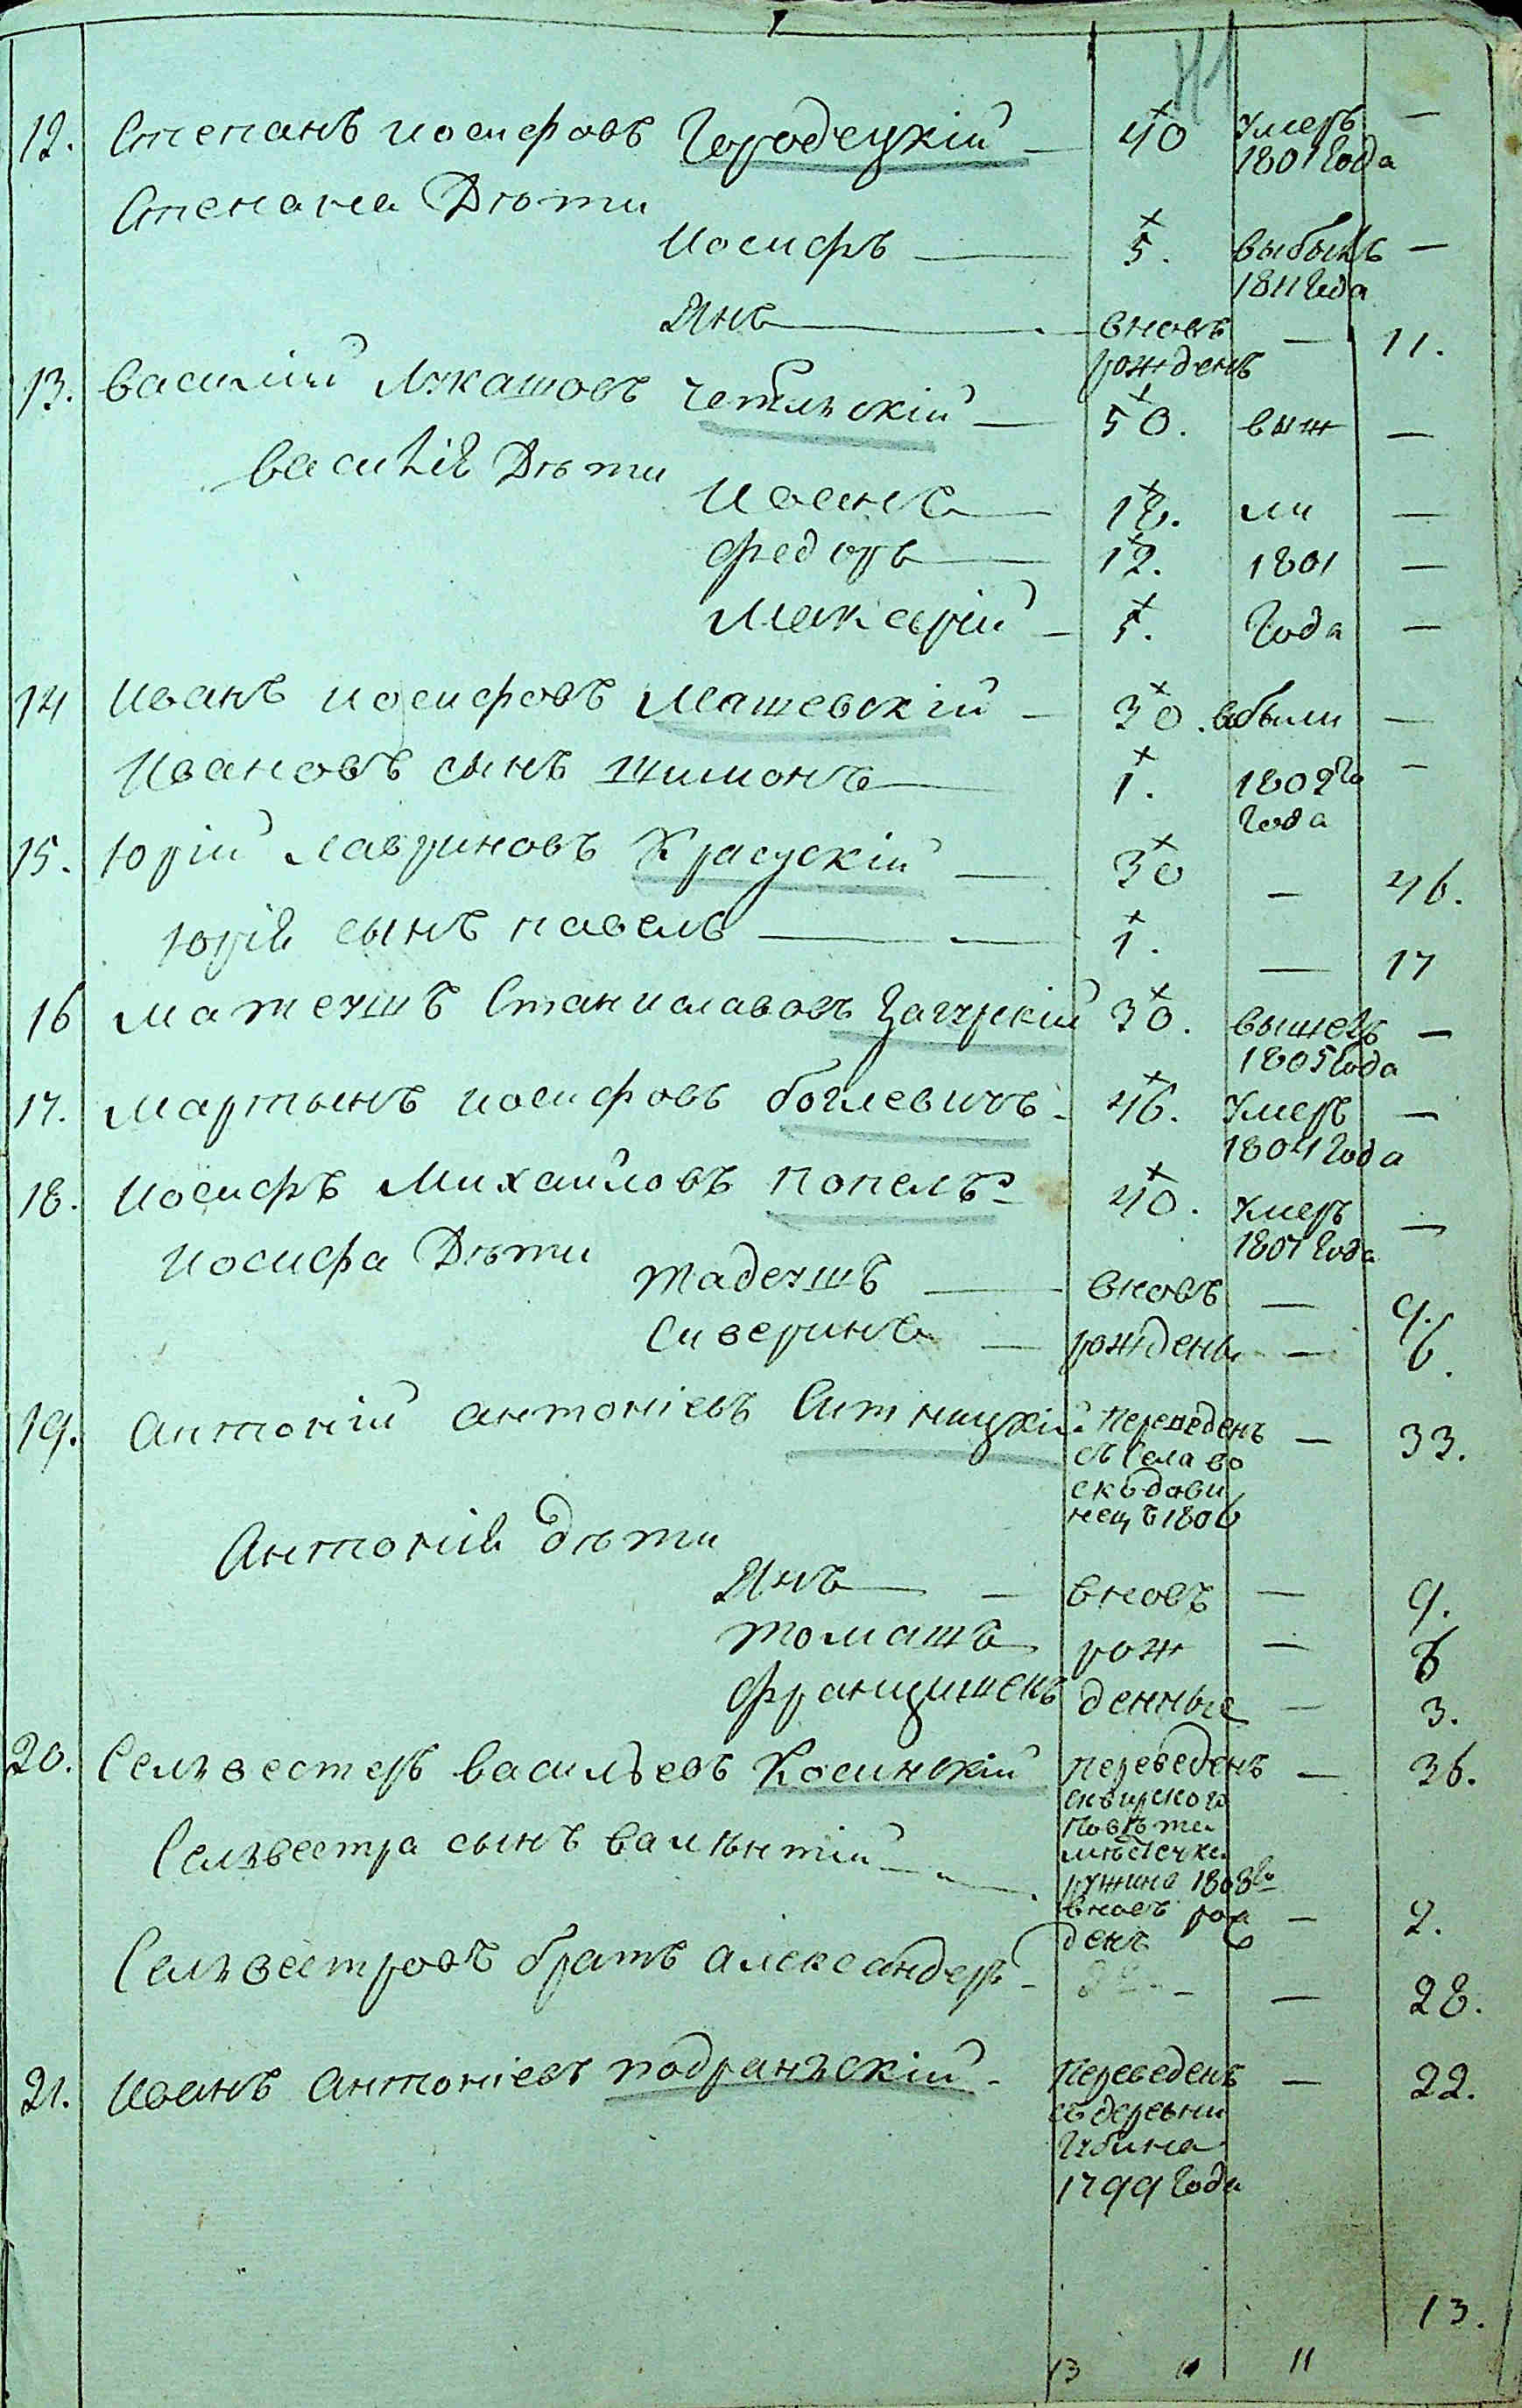 41
12. Степанъ иосифовъ Городецкій — 40 умеръ —
1801 Года
Степана Дѣти
Иосифъ — 5. выбылъ —
1811 Года
Янъ — вновь — 11.
рожденъ
13. Василий Лукашовъ — 50. выш —
Василій Дѣти
Иванъ — 18. ли —
Федоръ — 12. 1801 —
Макарій — 5. Года —
14 Иванъ иосифовъ Машевскій — 30. выбыли —
Ивановъ сынъ шимонъ — 1. 1802го —
Года
15. Юрій Лавриновъ Красускій — 30 — 46.
Юрій сынъ павелъ — 1. — 17
16 Матеушъ Станиславовъ Загурскій 30. вышелъ —
1805 Года
17. Мартынъ иосифовъ богмевичъ - 46. умеръ —
1804 Года
18. Иосифъ Михайловъ попель - 40. умеръ —
1807 Года
Иосифа Дѣти
тадеушъ — вновь — 9.
Сиверинъ — рождены — 6.
19. Антоній антоніевъ Ситницкій Переведенъ — 33.
съ Села во
нецъ 1806
Антоній дѣти
Янъ — вновь — 9.
томашъ рож — 6
Францишекъ денные — 3.
20. Селвестеръ васильевъ Косинскій переведенъ — 36.
сквирского
Повѣта
мѣстечка
ружина 1808го
Селвестра сынъ валентій — вновь рож — 2.
денъ
Селвестровъ братъ александеръ - — 28.
21. Иванъ антоніевъ подранскій - Переведенъ — 22.
съ деревни
Губина
1799 Года
13.
13 11 11